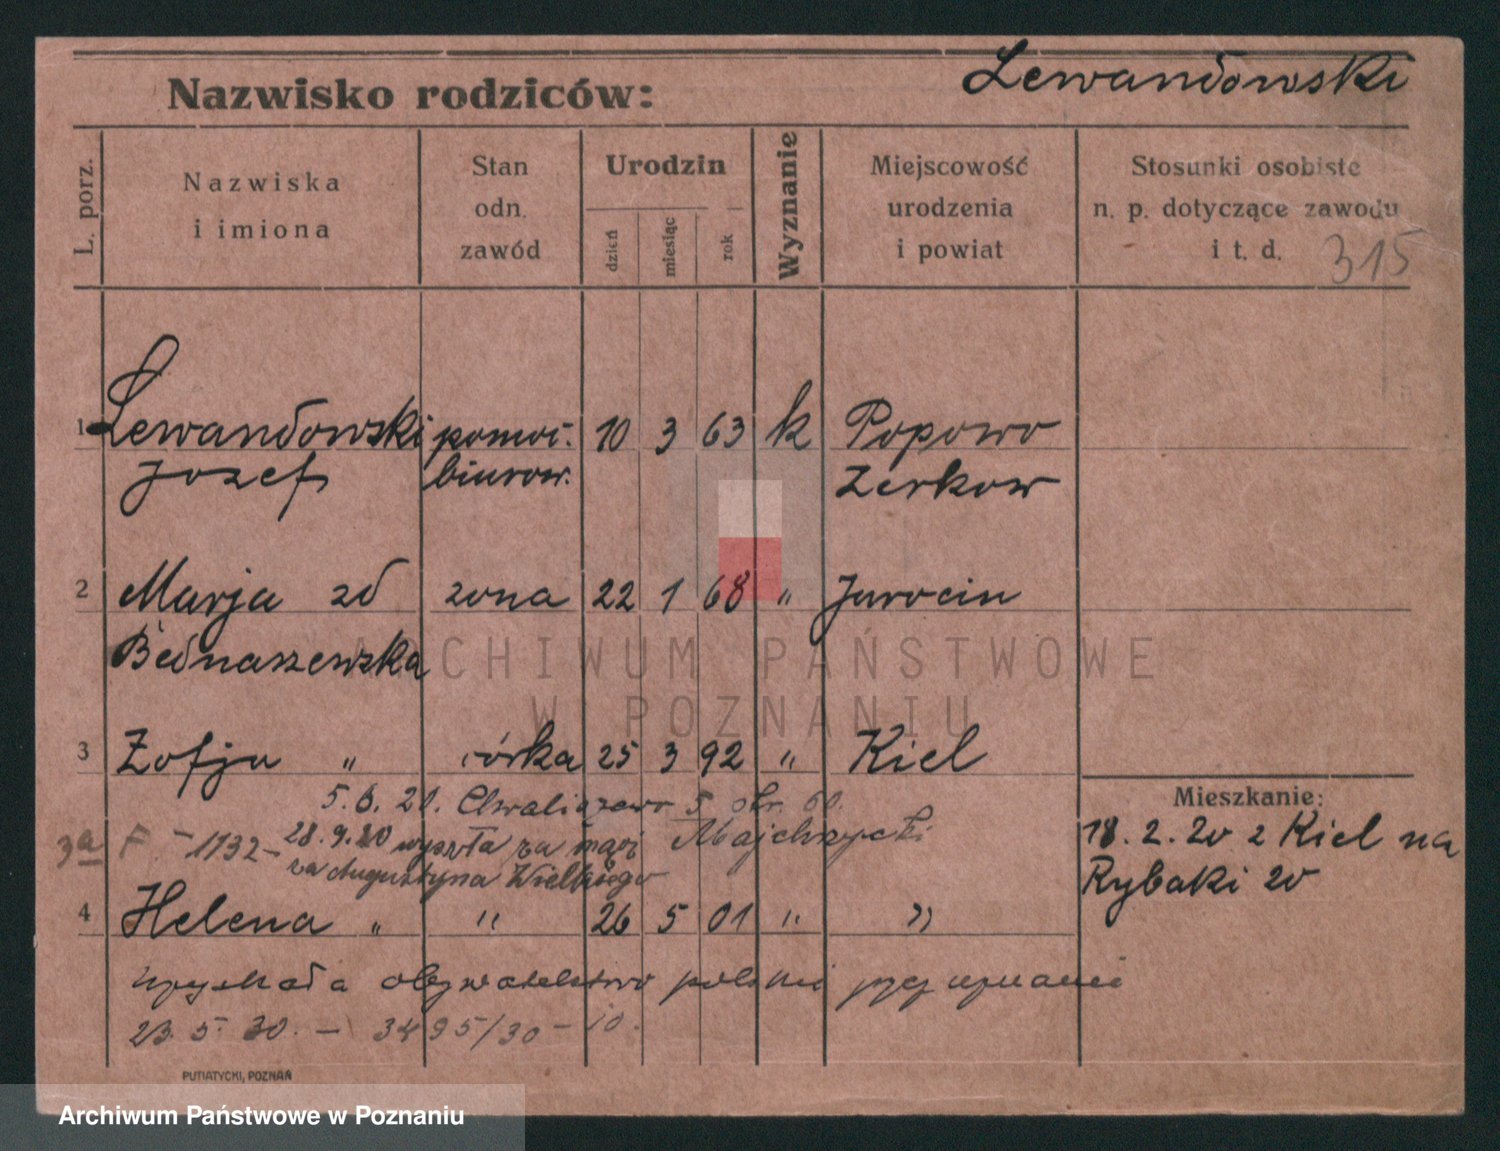 Nazwisko rodziców: Lewandowski
L. porz.
Nazwiska
i imiona
Stan
odn.
zawód
Urodzin
dzień
miesiąc
rok
Wyznanie
Miejscowość
urodzenia
i powiat
Stosunki osobiste
n. p. dotyczące zawodu
i t. d.
315
1 Lewandowski pomoc. 10 3 63 k Popowo
Jozef biurow. Zerkow
2 Marja zd zona 22 1 68 " Jarocin
Bednaszewska
3 Zofja " córka 25 3 92 " Kiel
5. 6. 20. Chwaliszewo
3a F. - 1132 - 28.9.20 wyszła za mąż Majchrzycki
za Augustyna Wielkiego
4 Helena " " 26 5 01 " "
uzyskała obywatelstwo polskie przez uznanie
23. 5. 30. - 3495/30 - 10.
Mieszkanie:
18. 2. 20 z Kiel na
Rybaki 20
PUTIATYCKI, POZNAŃ
ARCHIWUM PAŃSTWOWE
W POZNANIU
Archiwum Państwowe w Poznaniu